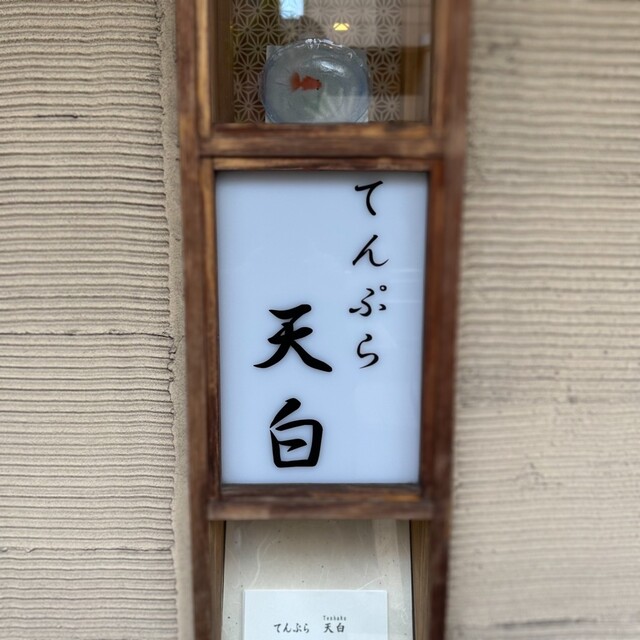 てんぷら
天白
Tenhaku
てんぷら 天白